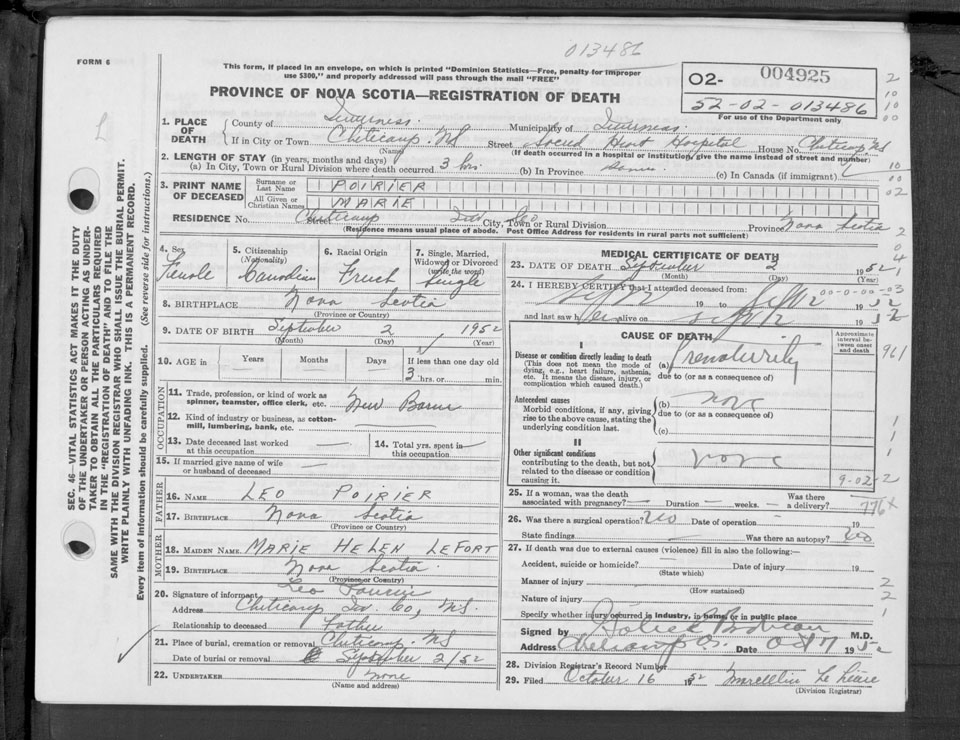 013486
FORM 6
This form, if placed in an envelope, on which is printed "Dominion Statistics—Free, penalty for improper
use $300," and properly addressed will pass through the mail "FREE"
PROVINCE OF NOVA SCOTIA—REGISTRATION OF DEATH
O2- 004925
52-02-013486
For use of the Department only
1. PLACE OF DEATH
County of Inverness. Municipality of Inverness.
If in City or Town Cheticamp. NS Street Sacred Heart Hospital House No. Cheticamp NS
(Name) (If death occurred in a hospital or institution, give the name instead of street and number)
2. LENGTH OF STAY (in years, months and days)
(a) In City, Town or Rural Division where death occurred 3 hrs. (b) In Province (c) In Canada (if immigrant)
3. PRINT NAME OF DECEASED
Surname or Last Name POIRIER
All Given or Christian Names MARIE
RESIDENCE No. Street Cheticamp Inv Co City, Town or Rural Division Province Nova Scotia
(Residence means usual place of abode. Post Office Address for residents in rural parts not sufficient)
4. Sex Female
5. Citizenship (Nationality) Canadian
6. Racial Origin French
7. Single, Married, Widowed or Divorced (write the word) Single
8. BIRTHPLACE Nova Scotia
(Province or Country)
9. DATE OF BIRTH September 2 1952
(Month) (Day) (Year)
10. AGE in Years Months Days If less than one day old
3 hrs. or min.
OCCUPATION
11. Trade, profession, or kind of work as
spinner, teamster, office clerk, etc. New Borne
12. Kind of industry or business, as cotton-
mill, lumbering, bank, etc.
13. Date deceased last worked
at this occupation
14. Total yrs. spent in
this occupation
15. If married give name of wife
or husband of deceased
FATHER
16. NAME LEO POIRIER
17. BIRTHPLACE Nova Scotia
(Province or Country)
MOTHER
18. MAIDEN NAME. MARIE HELEN LEFORT
19. BIRTHPLACE Nova Scotia.
(Province or Country)
20. Signature of informant Leo
Address Cheticamp Inv Co, NS.
Relationship to deceased Father
21. Place of burial, cremation or removal Cheticamp. NS
Date of burial or removal September 2/52
22. UNDERTAKER None
(Name and address)
MEDICAL CERTIFICATE OF DEATH
23. DATE OF DEATH September 2 1952
(Month) (Day) (Year)
24. I HEREBY CERTIFY that I attended deceased from:
Sept 2 19 to Sept 2 1952
00-0-00-03
and last saw her alive on Sept 2 1952
CAUSE OF DEATH
Approximate interval between onset and death
I
Disease or condition directly leading to death
(This does not mean the mode of
dying, e.g., heart failure, asthenia,
etc. It means the disease, injury, or
complication which caused death.)
(a) Prematurity
due to (or as a consequence of)
961
Antecedent causes
Morbid conditions, if any, giving
rise to the above cause, stating the
underlying condition last.
(b) none
due to (or as a consequence of)
(c)
II
Other significant conditions
contributing to the death, but not
related to the disease or condition
causing it.
none
9-02-2
25. If a woman, was the death
associated with pregnancy? Duration weeks. Was there
a delivery?
776x
26. Was there a surgical operation? no Date of operation 19
State findings Was there an autopsy? no
27. If death was due to external causes (violence) fill in also the following:—
Accident, suicide or homicide? Date of injury 19
(State which)
Manner of injury
(How sustained)
Nature of injury
Specify whether injury occurred in industry, in home, or in public place
Signed by M.D.
Address Cheticamp Date Oct 17 1952
28. Division Registrar's Record Number
29. Filed October 16 1952
(Division Registrar)
SEC. 46—VITAL STATISTICS ACT MAKES IT THE DUTY
OF THE UNDERTAKER OR PERSON ACTING AS UNDER-
TAKER TO OBTAIN ALL THE PARTICULARS REQUIRED
IN THE "REGISTRATION OF DEATH" AND TO FILE THE
SAME WITH THE DIVISION REGISTRAR WHO SHALL ISSUE THE BURIAL PERMIT.
WRITE PLAINLY WITH UNFADING INK. THIS IS A PERMANENT RECORD.
Every item of information should be carefully supplied. (See reverse side for instructions.)